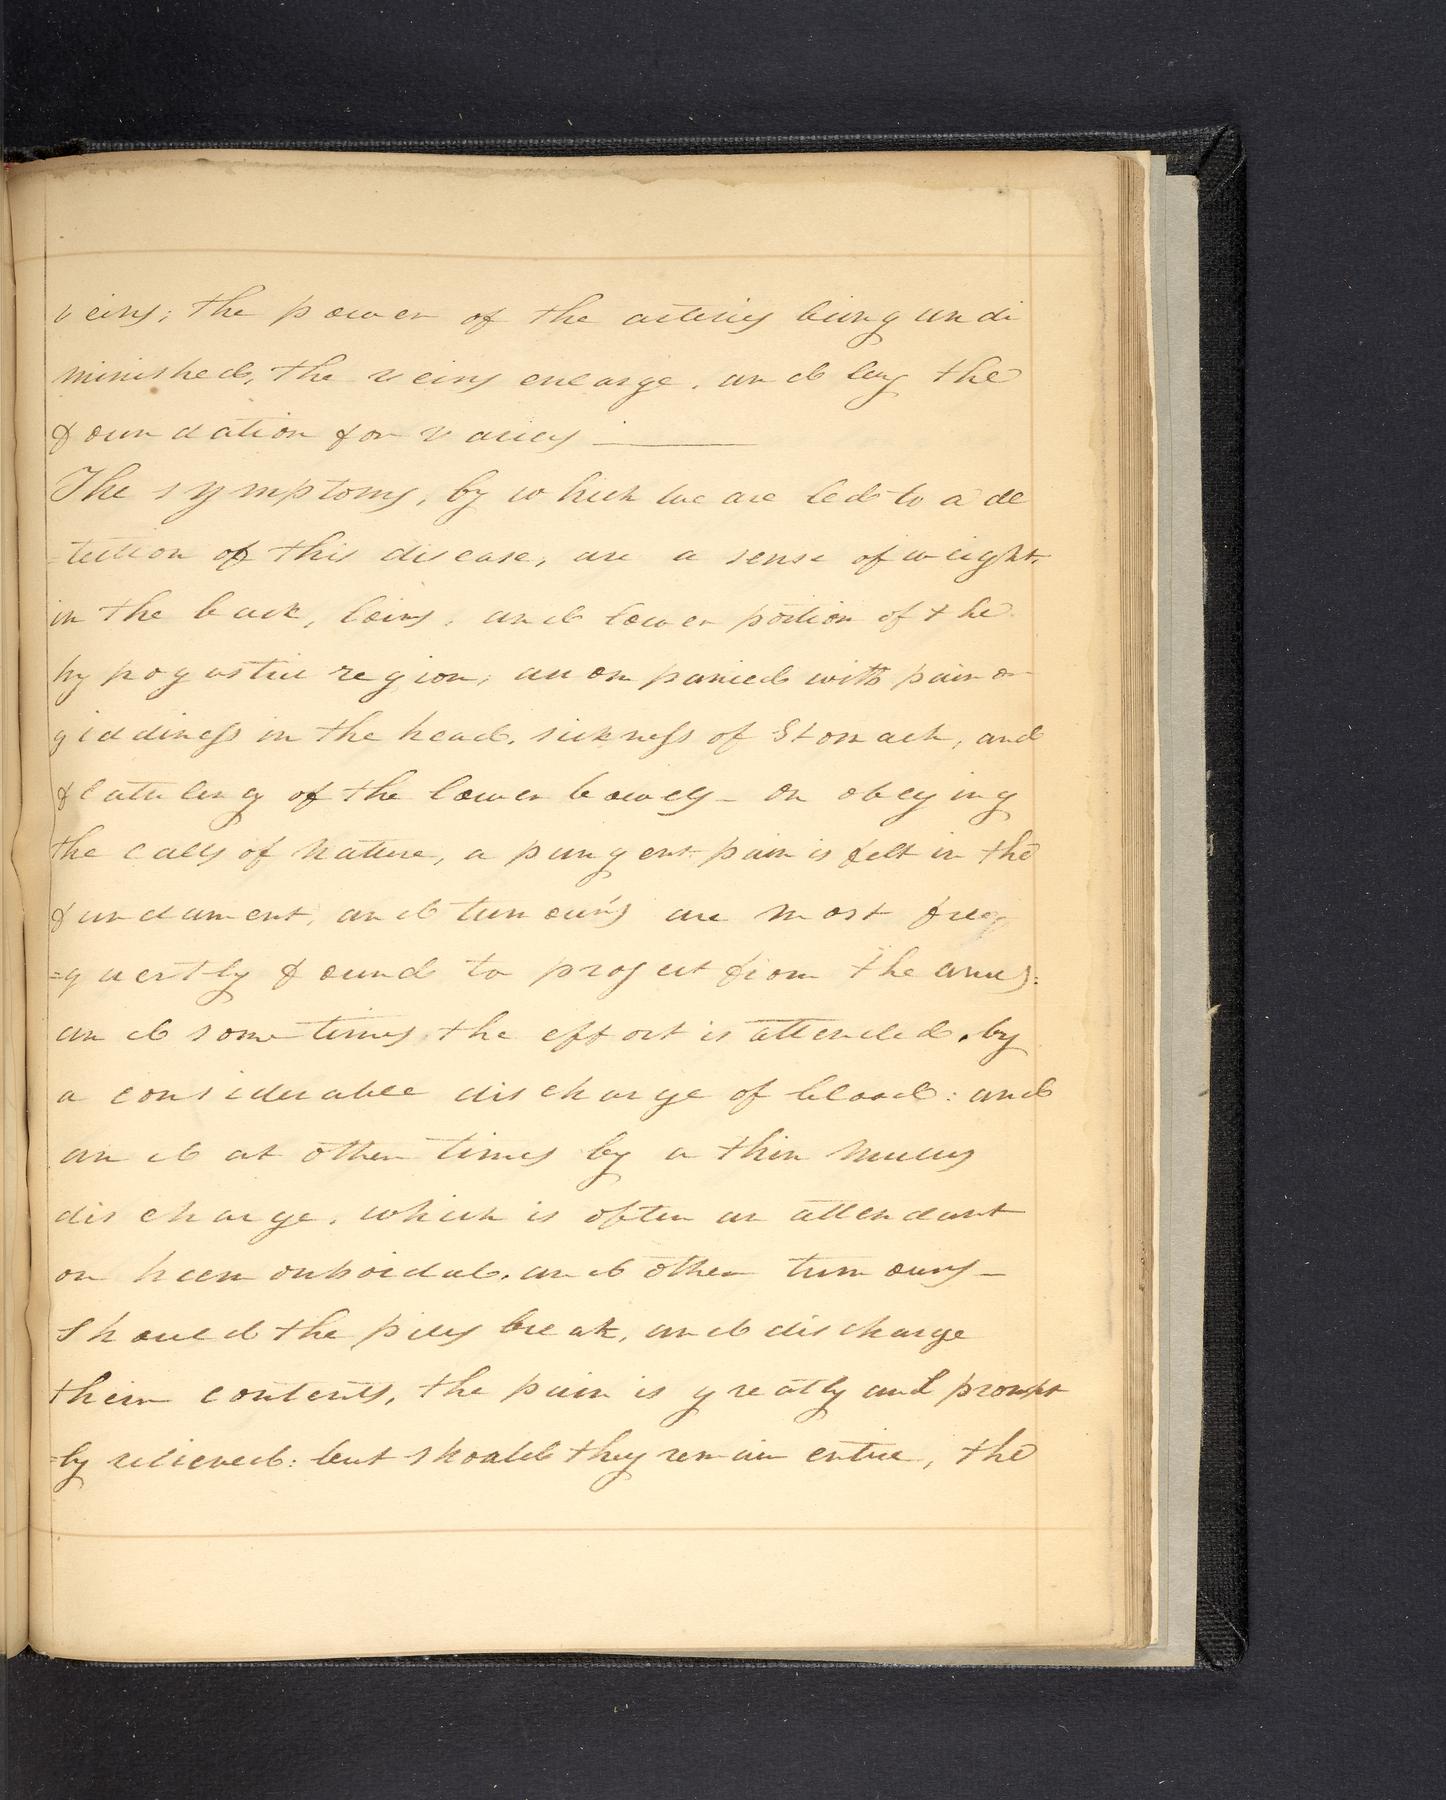 veins; the power of the arteries being undi
minished, the veins enlarge, and lay the
foundation for varices ———
The symptoms, by which we are led to a de
=tection of this disease, are a sense of weight,
in the back, loins, and lower portion of the
hypogastric region, accompanied with pain or
giddiness in the head, sickness of Stomach, and
flatulency of the lower bowels - On obeying
the calls of nature, a pungent pain is felt in the
fundament, and tumours are most freq
=quently found to project from the anus:
and sometimes, the effort is attended, by
a considerable discharge of blood: and
and at other times by a thin mucus
discharge, which is often an attendant
on hæmorrhoidal, and other tumours -
Should the piles break, and discharge
their contents, the pain is greatly and prompt
=ly relieved: but should they remain entire, the